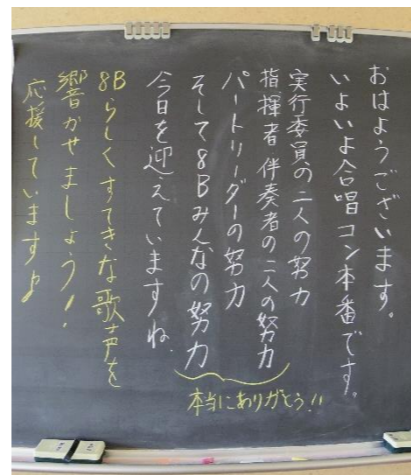 おはようございます。
いよいよ合唱コン本番です。
実行委員の二人の努力
指揮者 伴奏者の二人の努力
パートリーダーの努力
そして8Bみんなの努力
本当にありがとう!!
今日を迎えていますね。
8Bらしくすてきな歌声を
響かせましょう!
応援しています♪